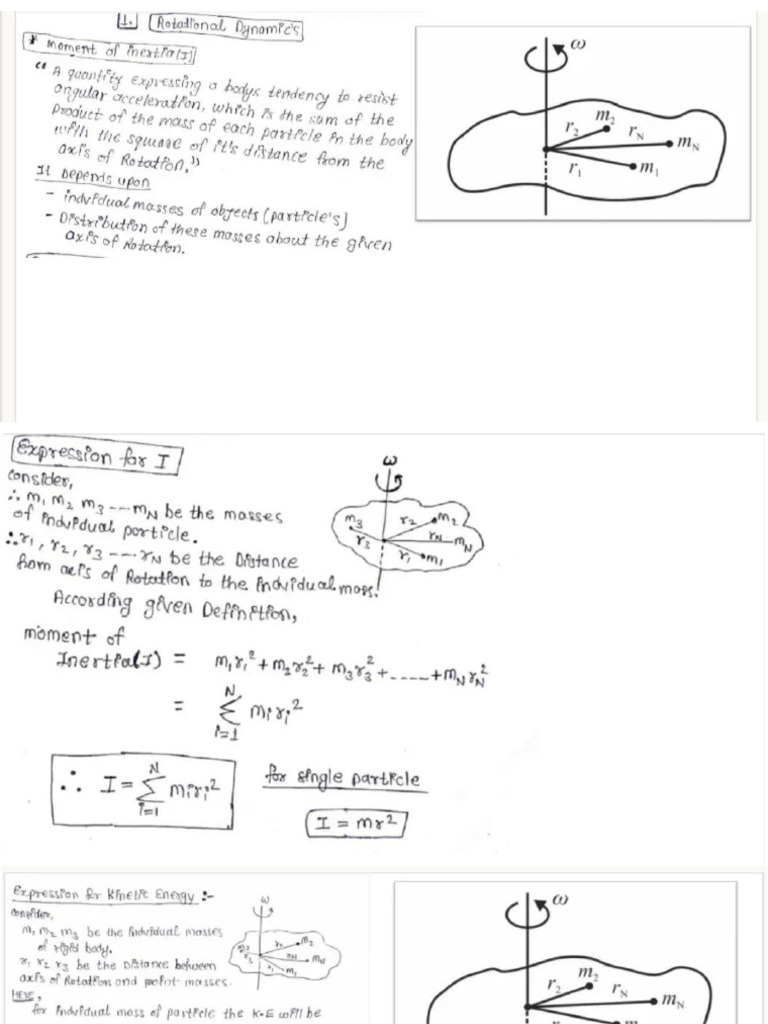 1. Rotational Dynamic's
* Moment of inertia(I)
" A quantity expressing a bodys tendency to resist
angular acceleration, which is the sum of the
product of the mass of each particle in the body
with the square of it's distance from the
axis of Rotation."
It Depends upon
- individual masses of objects (particle's)
- Distribution of these masses about the given
axis of Rotation.
ω
m2
r2
rN
mN
r1
m1
Expression for I
consider,
∴ m1 m2 m3 ---- mN be the masses
of individual particle.
∴ r1, r2, r3 ---- rN be the Distance
from axis of Rotation to the individual mass.
According given Definition,
ω
m3
r2
m2
r3
rN
mN
r1
m1
moment of
Inertia(I) = m1r1² + m2r2² + m3r3² + ----- + mNrN²
= N Σ i=1 miri²
∴ I = N Σ i=1 miri²
for single particle
I = mr²
Expression for Kinetic Energy :-
consider,
m1 m2 m3 be the individual masses
of rigid body.
r1 r2 r3 be the Distance between
axis of Rotation and point masses.
Here,
for individual mass of particle the K.E will be
ω
m3
r3
r2
m2
rN
mN
r1
m1
ω
m2
r2
rN
mN